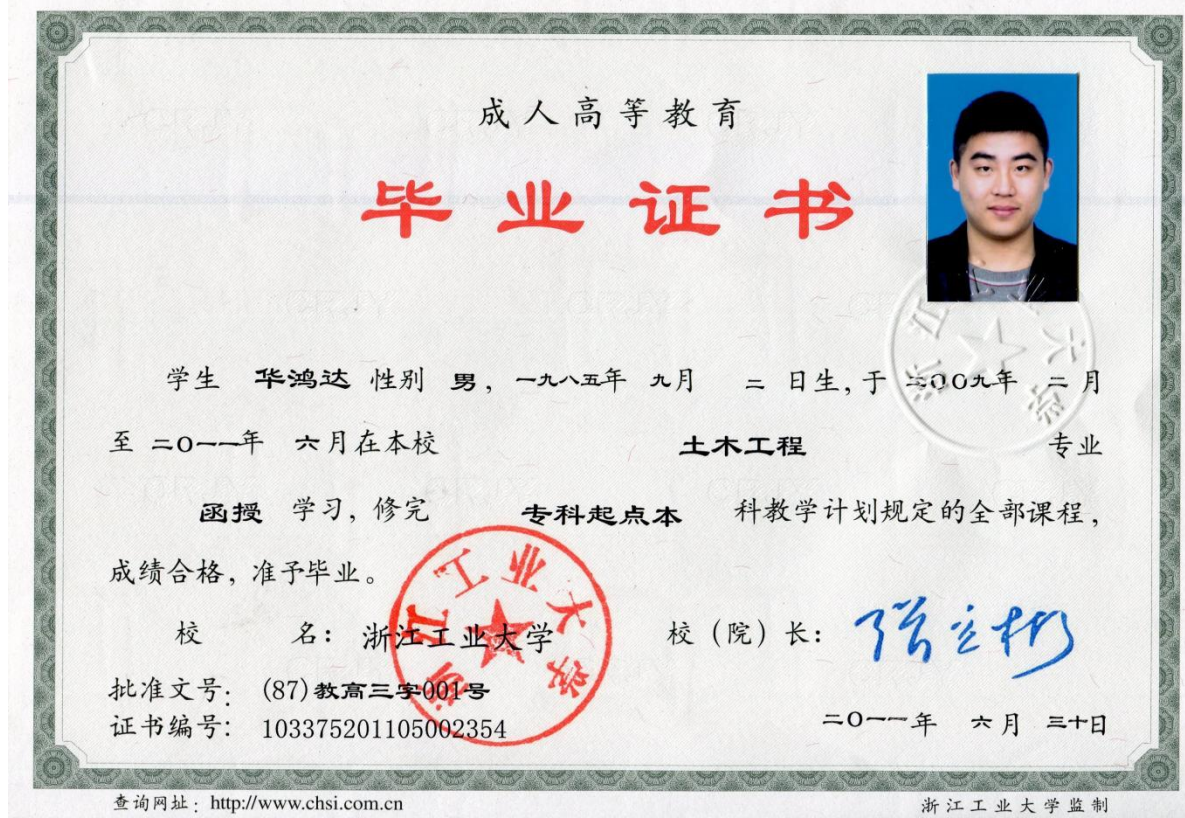 成人高等教育
毕业证书
学生 华鸿达 性别 男，一九八五年 九月 二 日生，于 二〇〇九年 二月
至 二〇一一年 六月在本校 土木工程 专业
函授 学习，修完 专科起点本 科教学计划规定的全部课程，
成绩合格，准予毕业。
浙江工业大学
校 名：浙江工业大学 校（院）长：
批准文号：(87)教高三字001号
证书编号：103375201105002354
二〇一一年 六月 三十日
查询网址：http://www.chsi.com.cn
浙江工业大学监制
浙江工业大学